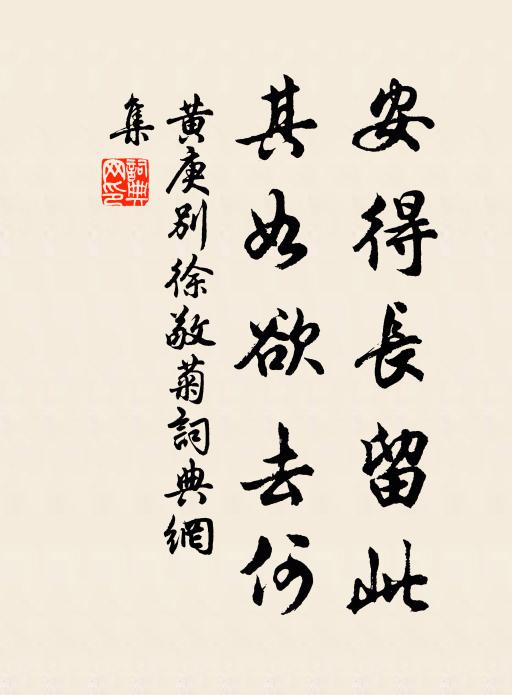 安得長留此
其如欲去何
黄庚別徐敬菊詞典網
集
詞典
网印